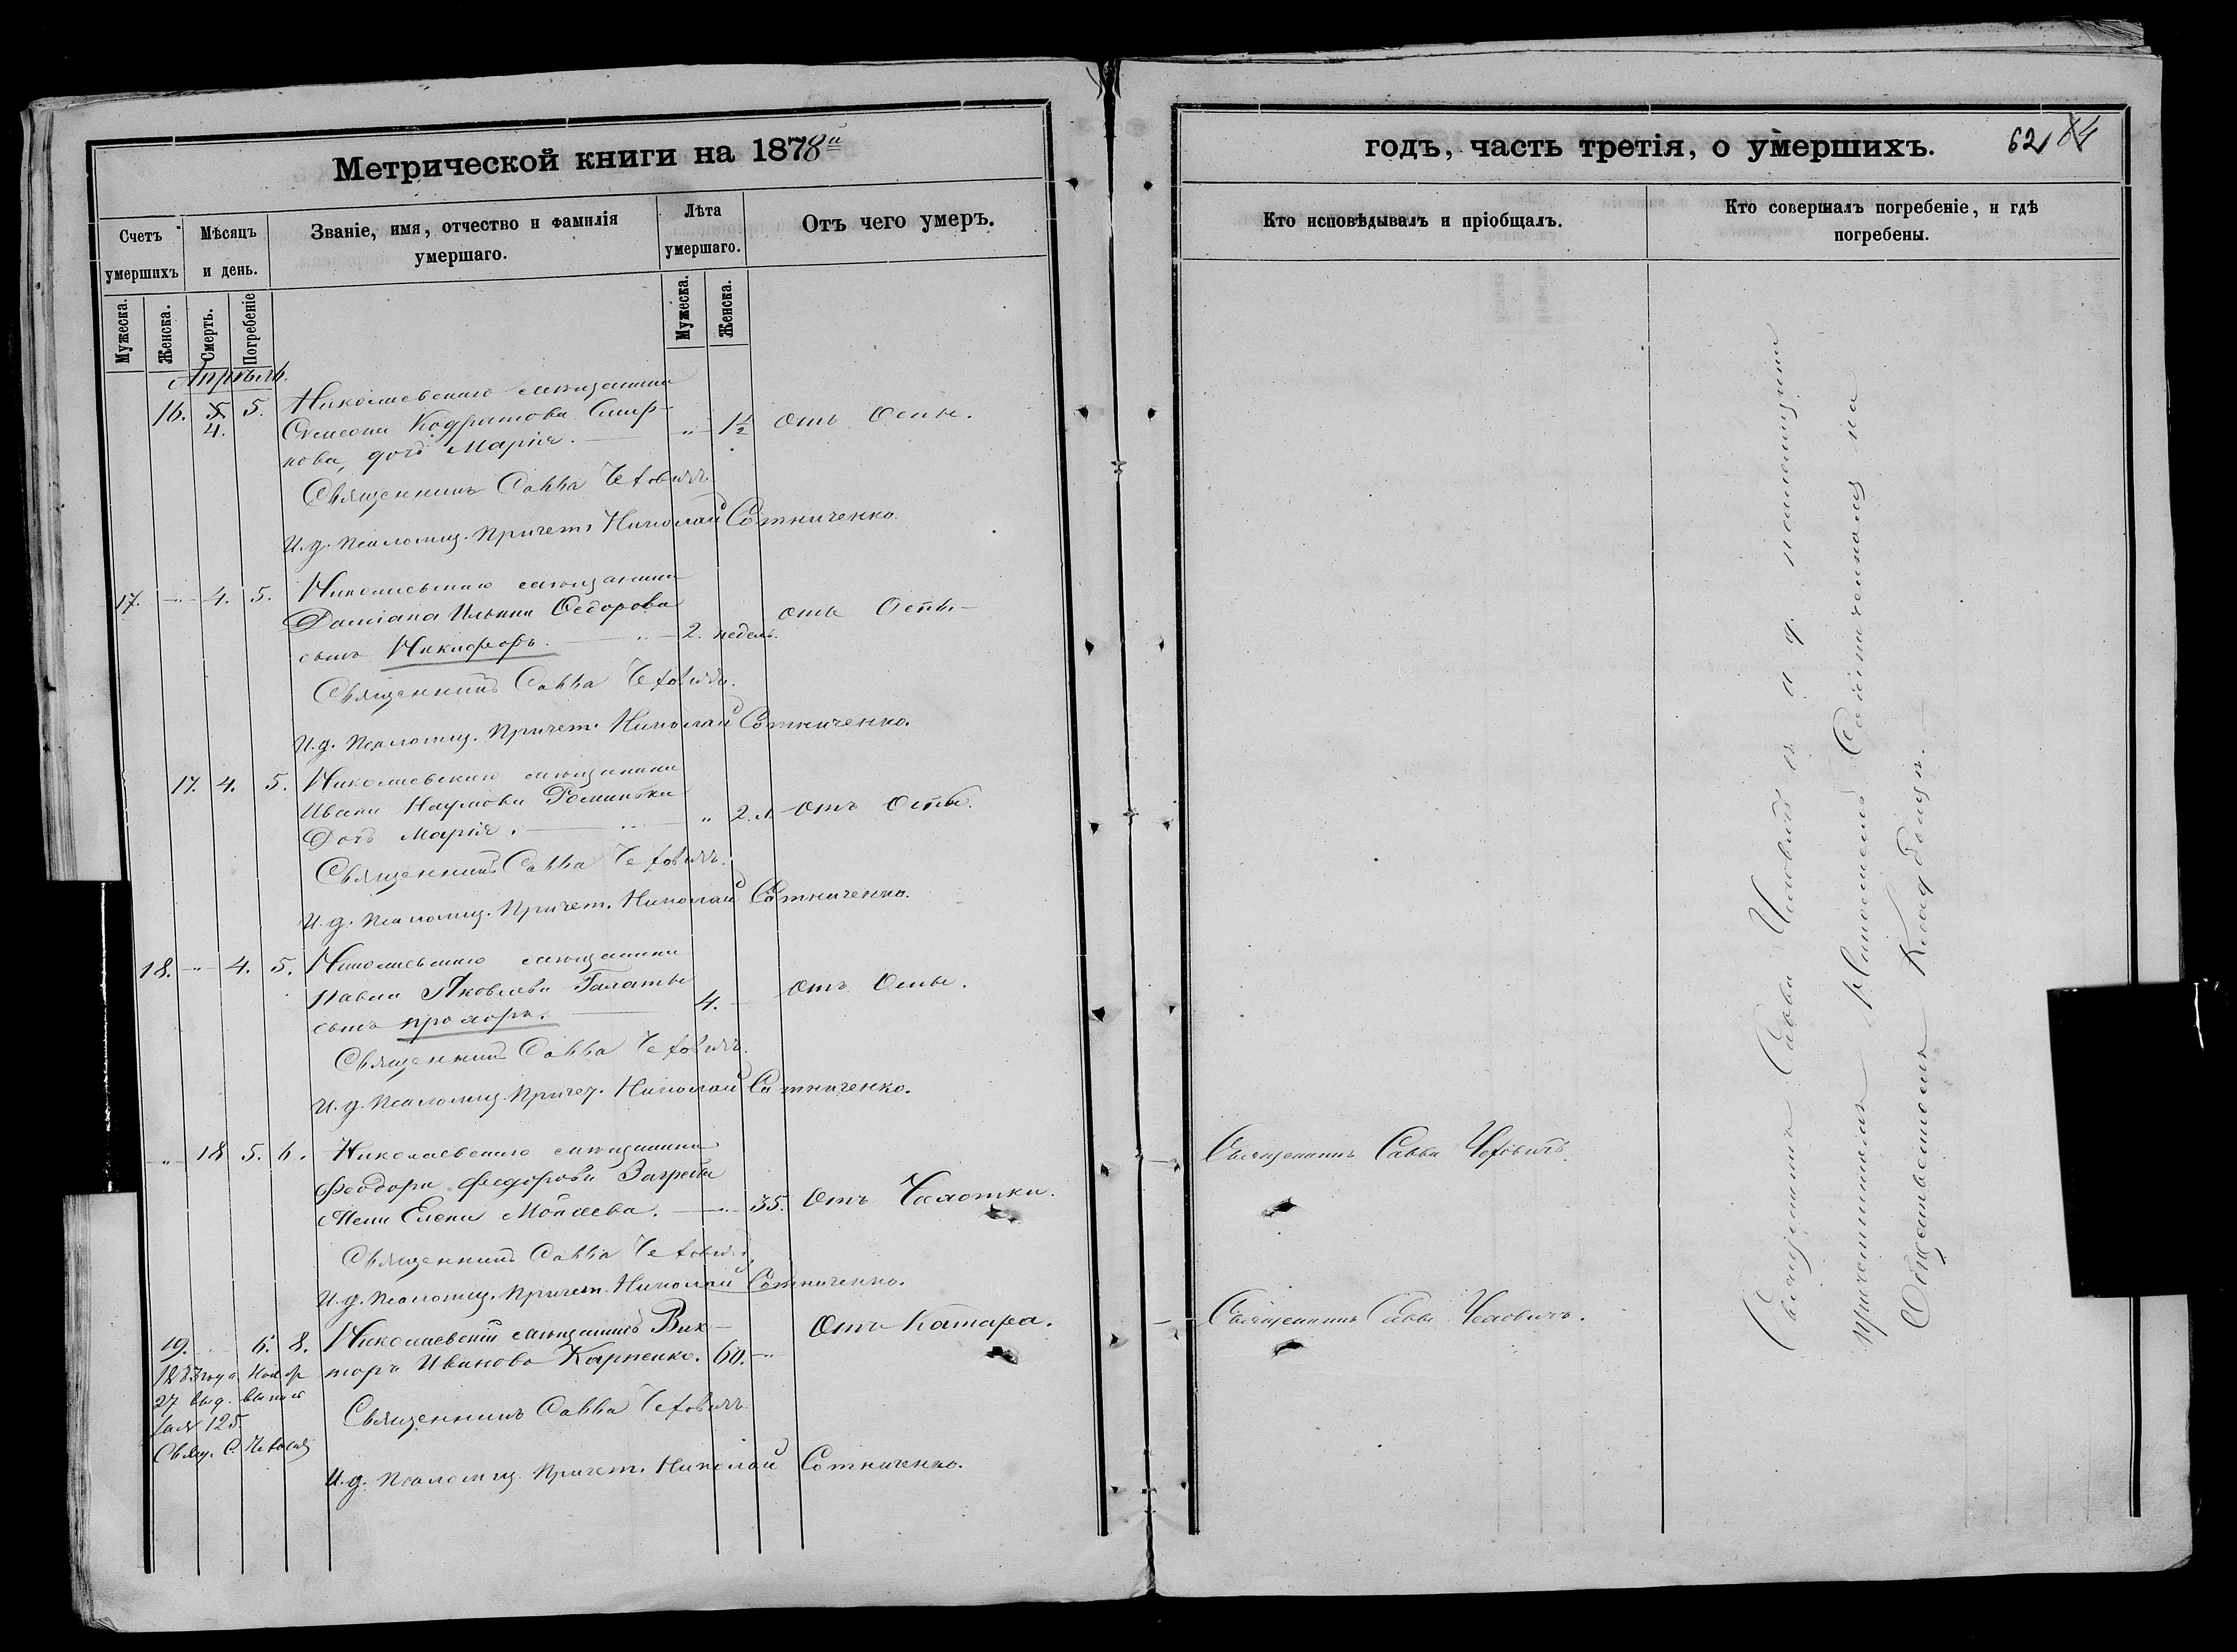 Метрической книги на 1878й
Счетъ умершихъ
Мѣсяцъ и день.
Званіе, имя, отчество и фамилія умершаго.
Лѣта умершаго.
Отъ чего умеръ.
Мужеска.
Женска.
Смерть.
Погребеніе
Мужеска.
Женска.
Апрѣль.
16. 5. 5. Николаевскаго мѣщанина
4.
Симеона Кодратова Смир-
нова, дочь Марія. „ 1½ отъ Оспы.
Священникъ Савва Чехович
И. д. псаломщ. Причет. Николай Сотниченко.
17. 4. 5. Николаевскаго мѣщанина
Даміана Ильина Федорова
сынъ Никифоръ. 2. недель. отъ Оспы
Священникъ Савва Чехович.
И. д. Псаломщ. Причет. Николай Сотниченко.
17. 4. 5. Николаевскаго мѣщанина
Ивана Наумова
Дочь Марія. „ 2. отъ Оспы.
Священникъ Савва Чехович.
И. д. Псаломщ. Причет. Николай Сотниченко.
18. 4. 5. Николаевскаго мѣщанина
Павла Яковлева Галаты
сынъ прохоръ. 4. отъ Оспы.
Священникъ Савва Чехович.
И. д. Псаломщ. Причет. Николай Сотниченко.
„ 18 5. 6. Николаевскаго мѣщанина
Феодора Федорова
Жена Елена Моисеева. 35. Отъ Чахотки.
Священникъ Савва Чехович.
И. д. Псаломщ. Причет. Николай Сотниченко.
19. 6. 8. Николаевскій мѣщанинъ Вик-
торъ Иванов Карпенко. 60. Отъ Катара.
27 выд.
125.
Свящ. С. Чехович
Священникъ Савва Чехович
И. д. Псаломщ. Причет. Николай Сотниченко.
годъ, часть третія, о умершихъ.
62 84
Кто исповѣдывалъ и пріобщалъ.
Кто совершалъ погребеніе, и гдѣ погребены.
Священникъ Савва Чеховичъ.
Священникъ Савва Чеховичъ.
Священникъ Савва Чеховичъ и и. д. псаломщика
причетникъ Николай Сотниченко на
Общественномъ Кладбищѣ.